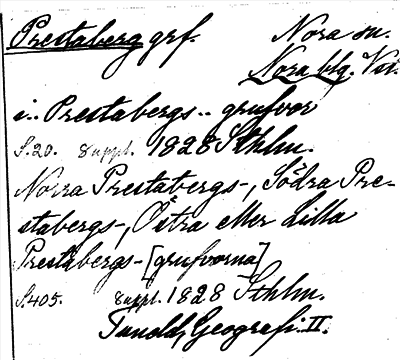 Prestaberg grf. Nora sn.
Nora blg. Vsl.
i.. Prestabergs.. grufvor
S. 20. Suppl. 1828 Sthlm.
Norra Prestabergs-, Södra Pre-
stabergs-, Östra eller Lilla
Prestabergs- [grufvorna]
S. 405. Suppl. 1828 Sthlm.
Tuneld, Geografi. II.